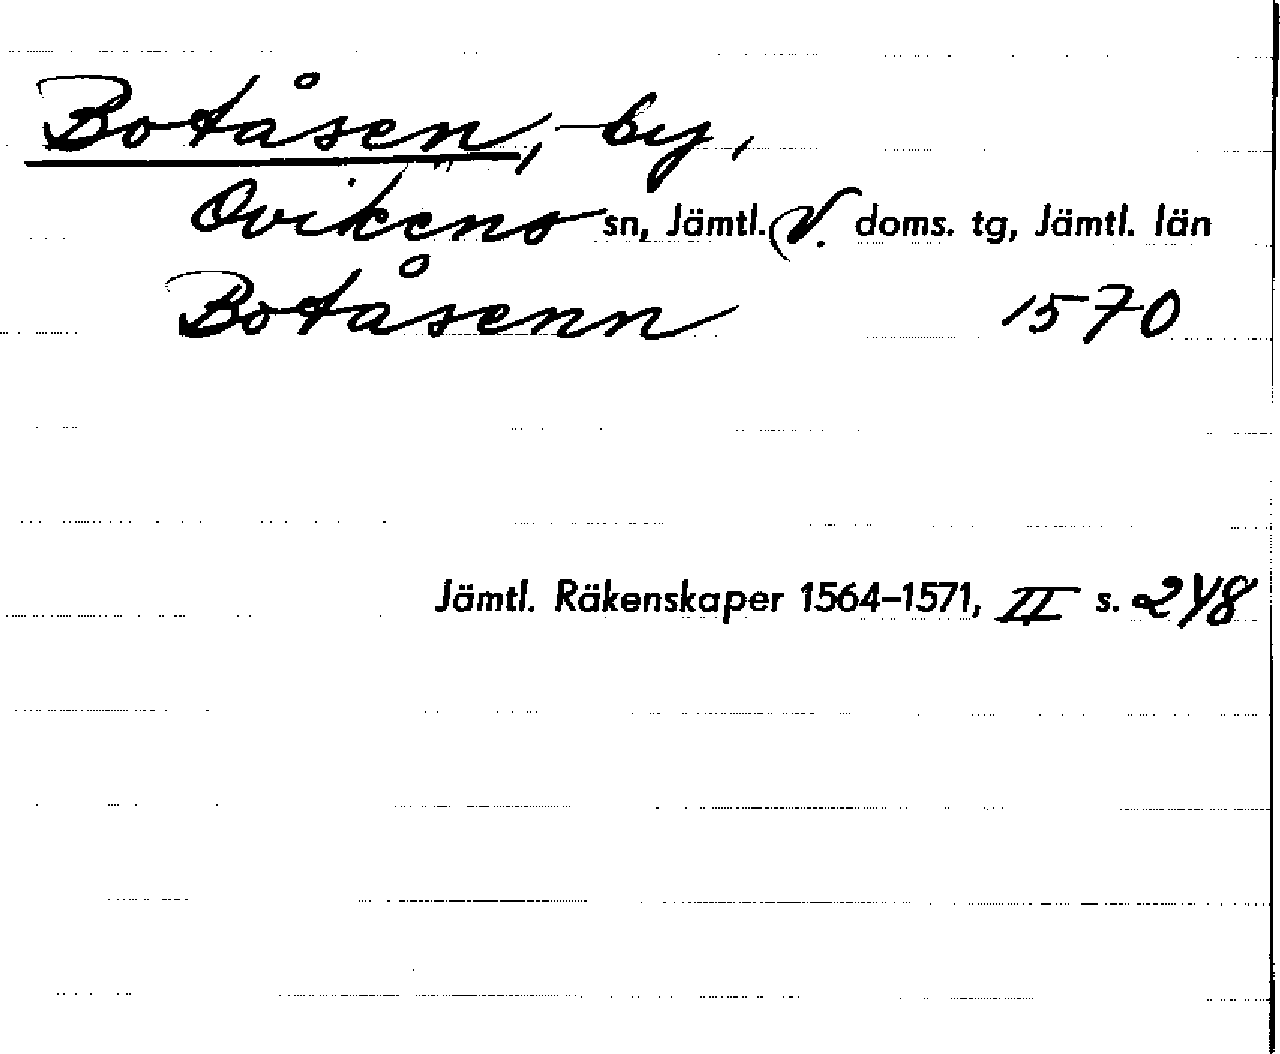 Botåsen, by,
Ovikens sn, Jämtl. V. doms. tg, Jämtl. län
Botåsenn 1570
Jämtl. Räkenskaper 1564-1571, II s. 248